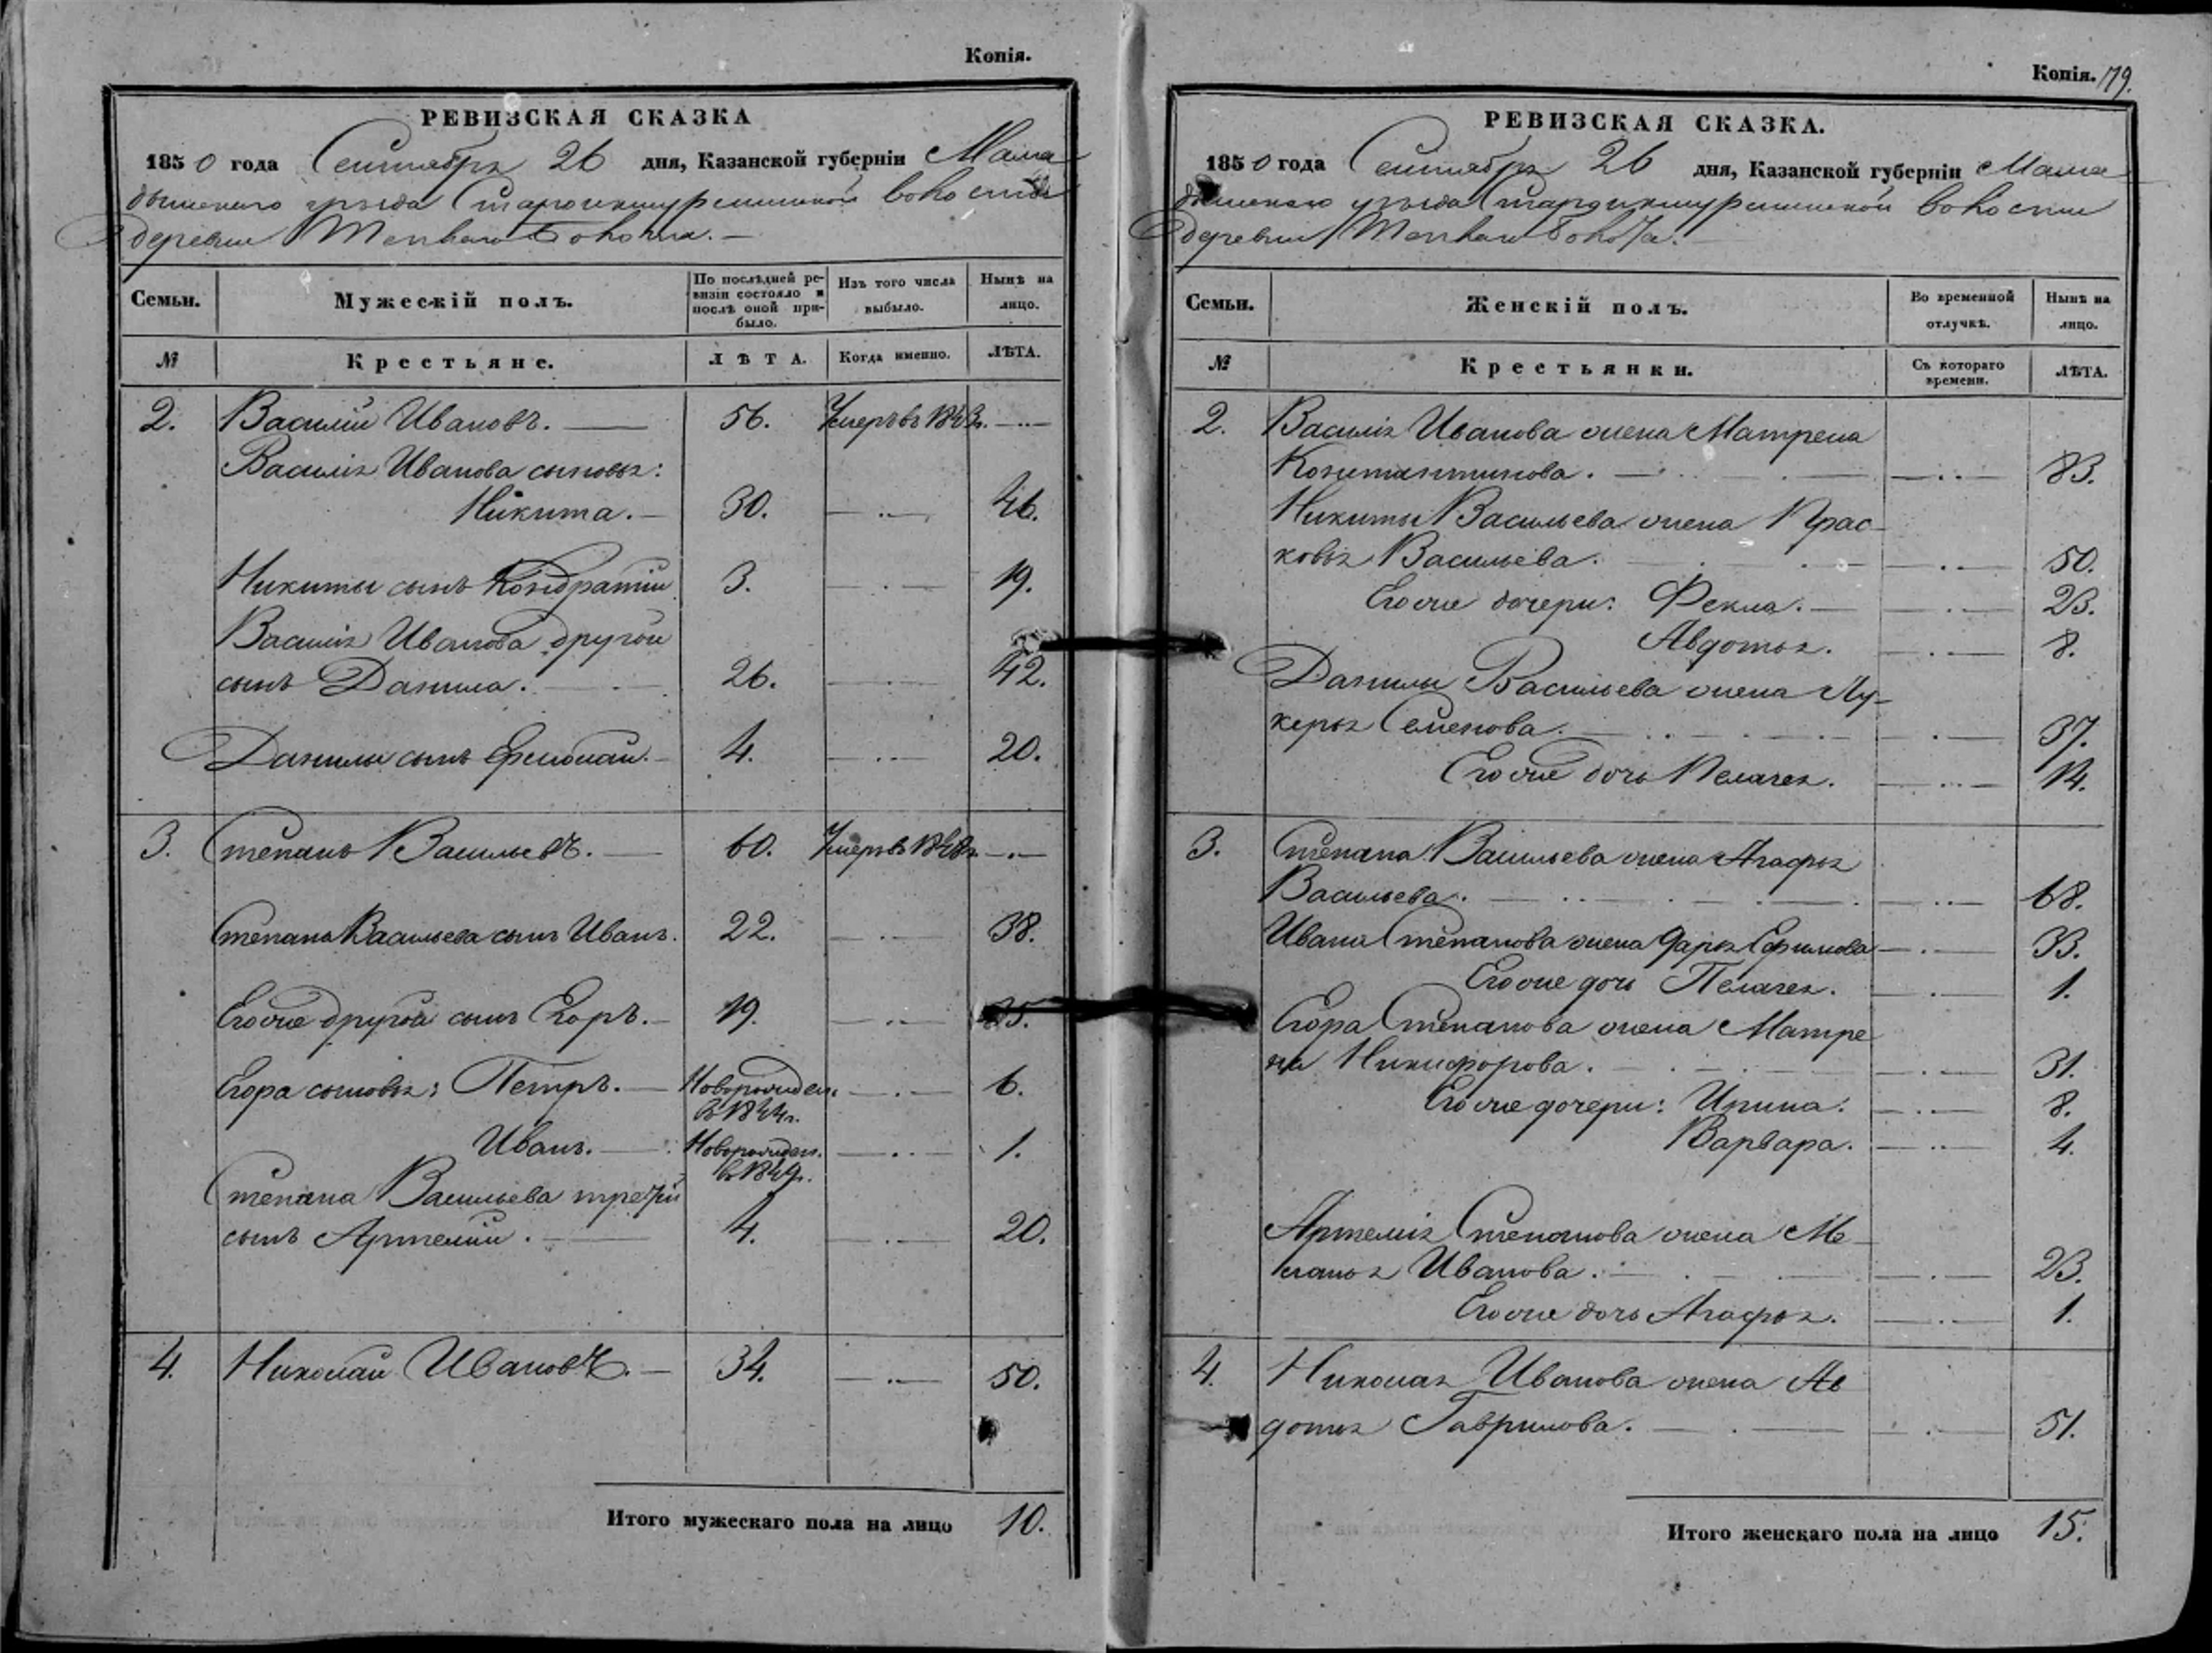 Копія.
РЕВИЗСКАЯ СКАЗКА
1850 года Сентября 26 дня, Казанской губерніи Мама
дышскаго уѣзда волости
деревни
Семьи. Мужескій полъ. По послѣдней ре-визіи состояло и послѣ оной при-было. Изъ того числа выбыло. Нынѣ на лицо.
№ Крестьяне. ЛѢТА. Когда именно. ЛѢТА.
2. Василій Ивановъ. 56. Умеръ въ 1843г.
Василія Иванова сыновья:
Никита. 30. 46.
Никиты сынъ Кондратій 3. 19.
Василія Иванова другой
сынъ Данила. 26. 42.
Данилы сынъ 4. 20.
3. Степанъ Васильевъ. 60. Умеръ въ
Степана Васильева сынъ Иванъ. 22. 38.
Егоже другой сынъ Егоръ. 19. 35.
Егора сыновья: Петръ. Новорожден. 6.
въ 1844г.
Иванъ. Новорожден. 1.
въ 1849г.
Степана Васильева третій
сынъ Артемій. 4. 20.
4. Николай Ивановъ. 34. 50.
Итого мужескаго пола на лицо 10.
Копія. 179.
РЕВИЗСКАЯ СКАЗКА.
1850 года Сентября 26 дня, Казанской губерніи Мама
дышскаго уѣзда волости
деревни
Семьи. Женскій полъ. Во временной отлучкѣ. Нынѣ на лицо.
№ Крестьянки. Съ котораго времени. ЛѢТА.
2. Василія Иванова жена Матрена
Константинова. 83.
Никиты Васильева жена Прас-
ковья Васильева. 50.
Егоже дочери: Фекла. 23.
Авдотья. 8.
Данилы Васильева жена Лу-
керья Семенова. 37.
Егоже дочь Пелагея. 14.
3. Степана Васильева жена Агафья
Васильева. 68.
Ивана Степанова жена Дарья Ефимова 33.
Егоже дочь Пелагея. 1.
Егора Степанова жена Матре
на Никифорова. 31.
Егоже дочери: Ирина. 8.
Варвара. 4.
Артемія Степанова жена Ме-
ланья Иванова. 23.
Егоже дочь Агафья. 1.
4. Николая Иванова жена Ав
дотья Гаврилова. 51.
Итого женскаго пола на лицо 15.